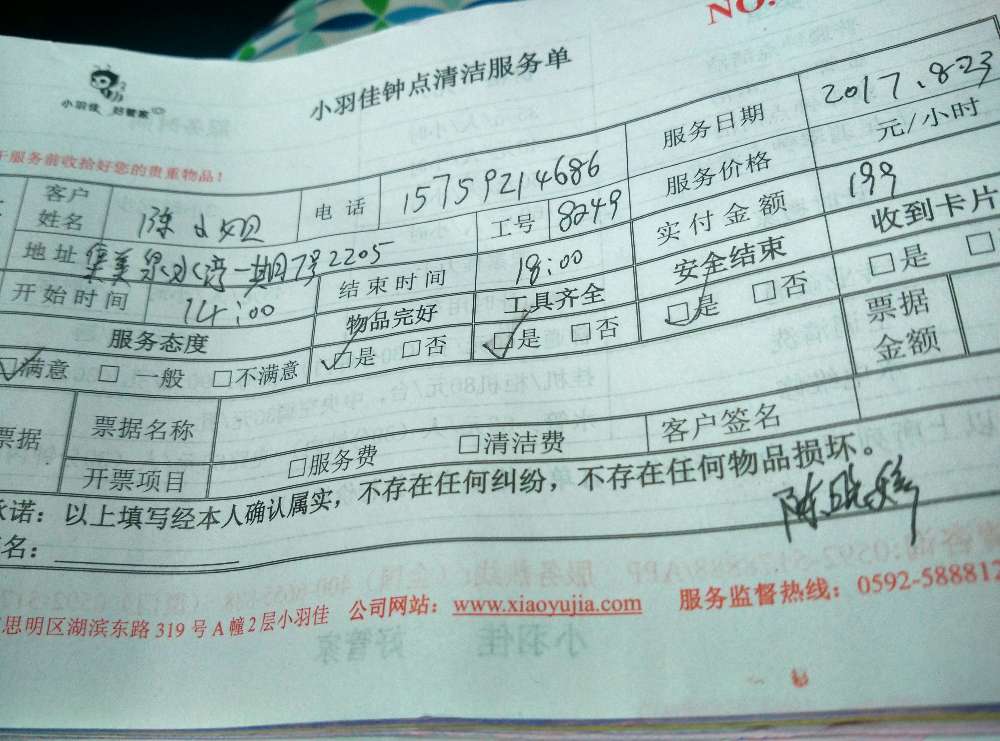 NO.
小羽佳 好管家
小羽佳钟点清洁服务单
服务前收拾好您的贵重物品！
客户姓名 陈小姐 电话 15759214686 服务日期 2017.8.23
地址 集美泉水湾一期7号2205 工号 8249 服务价格 元/小时
开始时间 14:00 结束时间 18:00 实付金额 199
服务态度 物品完好 工具齐全 安全结束 收到卡片
□满意 □一般 □不满意 □是 □否 □是 □否 □是 □否 □是
票据 票据名称 票据金额
开票项目 □服务费 □清洁费 客户签名
诺：以上填写经本人确认属实，不存在任何纠纷，不存在任何物品损坏。
名：
思明区湖滨东路319号A幢2层小羽佳 公司网站：www.xiaoyujia.com 服务监督热线：0592-588812